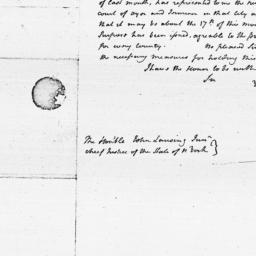 of last month, has represented to me the
court of oyer and Terminer in that city
that it may be about the 17th of this
has been issued, agreeable to the
for your country. Be pleased
the necessary measures for holding this
I have the Honor to be with
Sir
The Honble John Lansing Junr
Chief Justice of the State of N York